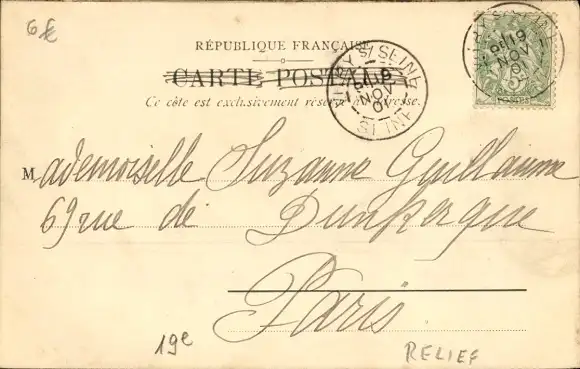 6 €
RÉPUBLIQUE FRANÇAISE
CARTE POSTALE
Ce côté est exclusivement réservé à l'adresse.
RY S/ SEINE
19
NOV
01
SEINE
19
NOV
01
Mademoiselle Suzanne Guillaume
69 rue de Dunkerque
Paris
19e
RELIEF